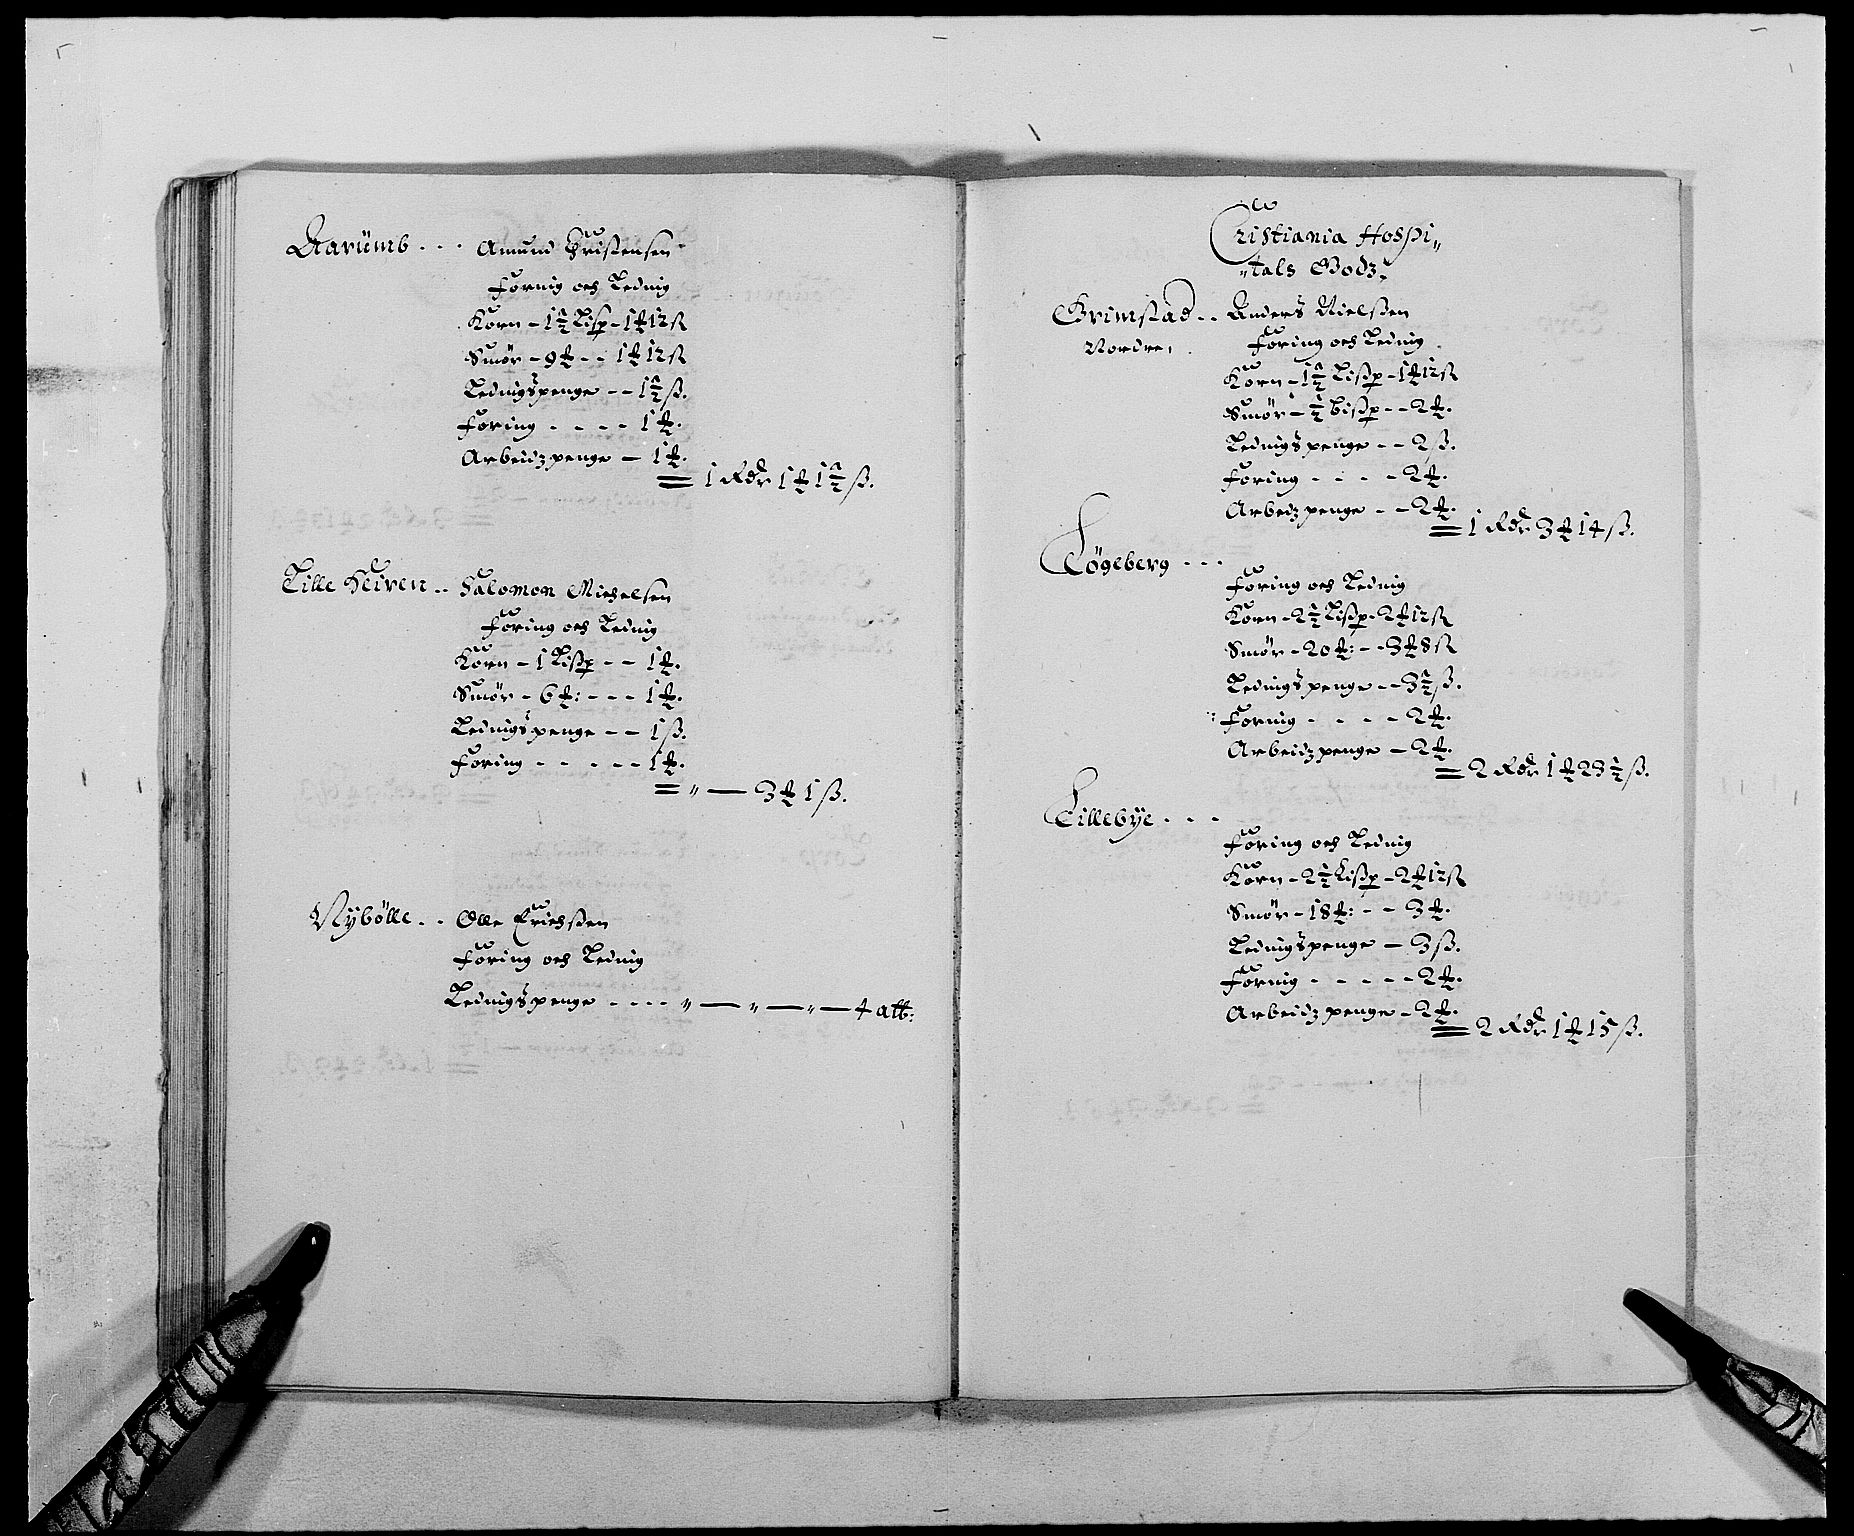 Karümb - - - Amund Christensen
Foring och Leding
Korn - 1½ Lisp - 1 ₰ 12 ß
Smør - 9 ₰ - - 1 ₰ 12 ß
Ledingspenge - - 1½ ß.
Foring - - - - 1 ₰.
Arbeidzpenge - 1 ₰.
= 1 Rdr 1 ₰ 1½ ß.
Lille Heiren - - Salomon Michelsen
Foring och Leding
Korn - 1 Lisp - - 1 ₰.
Smør - 6 ₰: - - - 1 ₰.
Ledingspenge - - 1 ß.
Foring - - - - - 1 ₰.
= „ — 3 ₰ 1 ß.
Nybölle - - Olle Erichsen
Foring och Leding
Ledingspenge - - - - „ — „ — „ — 4 alb:
Cristiania Hospi„
„tals Godz
Grimstad - - Anders Nielsen
Nordre, Foring och Leding
Korn - 1½ Lisp - 1 ₰ 12 ß
Smør - ½ Bissp - - 2 ₰.
Ledingspenge - - 2 ß.
Foring - - - - 2 ₰.
Arbeidzpenge - - 2 ₰.
= 1 Rdr 3 ₰ 14 ß.
Togeberg - - -
Foring och Leding
Korn - 2½ Lisp - 2 ₰ 12 ß
Smør - 20 ₰: - - 3 ₰ 8 ß
Ledingspenge - - 3½ ß.
Foring - - - - 2 ₰.
Arbeidzpenge - 2 ₰.
= 2 Rdr 1 ₰ 23½ ß.
Lillebÿe - - -
Foring och Leding
Korn - 2½ Lisp - 2 ₰ 12 ß
Smør - 18 ₰: - - 3 ₰.
Ledingspenge - 3 ß.
Foring - - - - - 2 ₰.
Arbeidzpenge - 2 ₰.
= 2 Rdr 1 ₰ 15 ß.